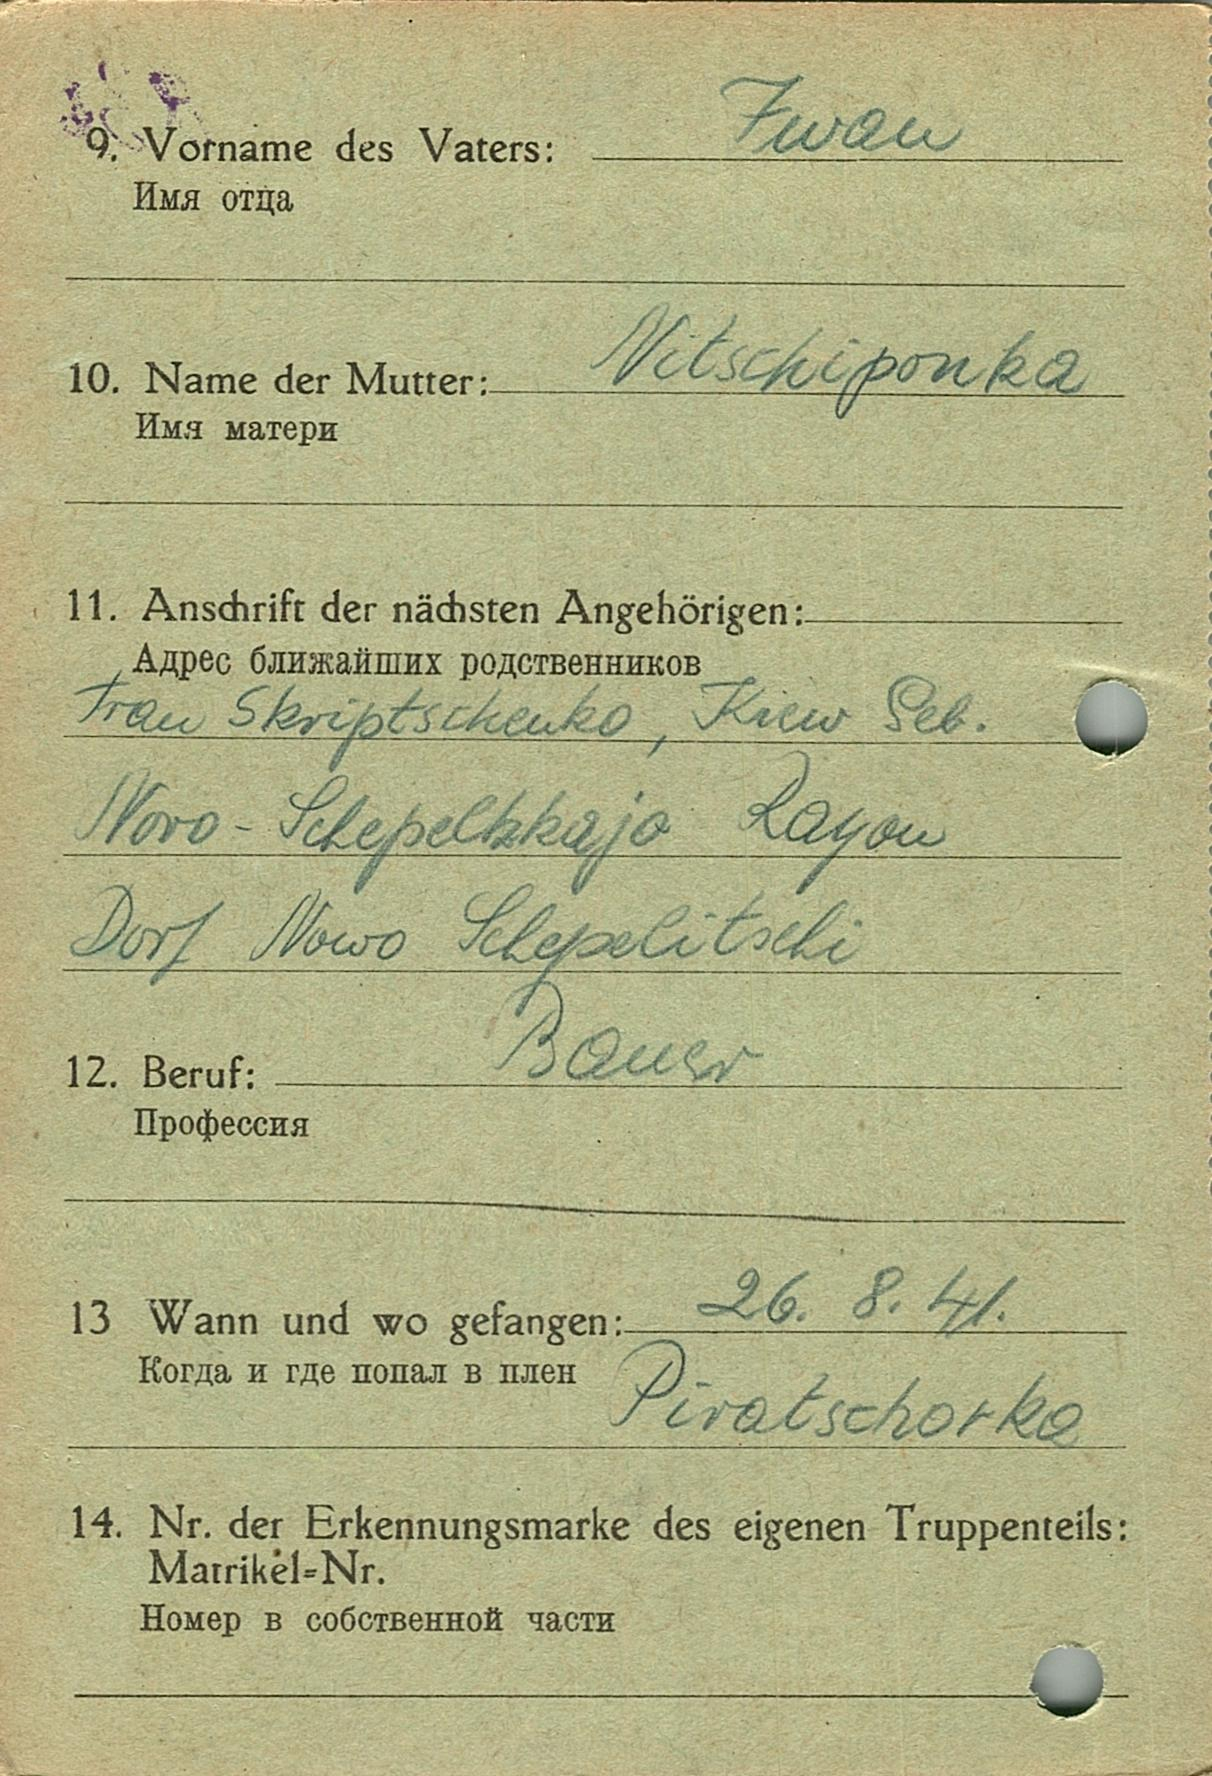 9. Vorname des Vaters: Iwan
Имя отца
10. Name der Mutter: Nitschiponka
Имя матери
11. Anschrift der nächsten Angehörigen:
Адрес ближайших родственников
Frau Skriptschenko, Kiew Geb.
Novo-Schepelizkaja Rayon
Dorf Nowo Schepelitschi
12. Beruf: Bauer
Профессия
13 Wann und wo gefangen: 26. 8. 41.
Когда и где попал в плен Piratschorka
14. Nr. der Erkennungsmarke des eigenen Truppenteils:
Matrikel=Nr.
Номер в собственной части